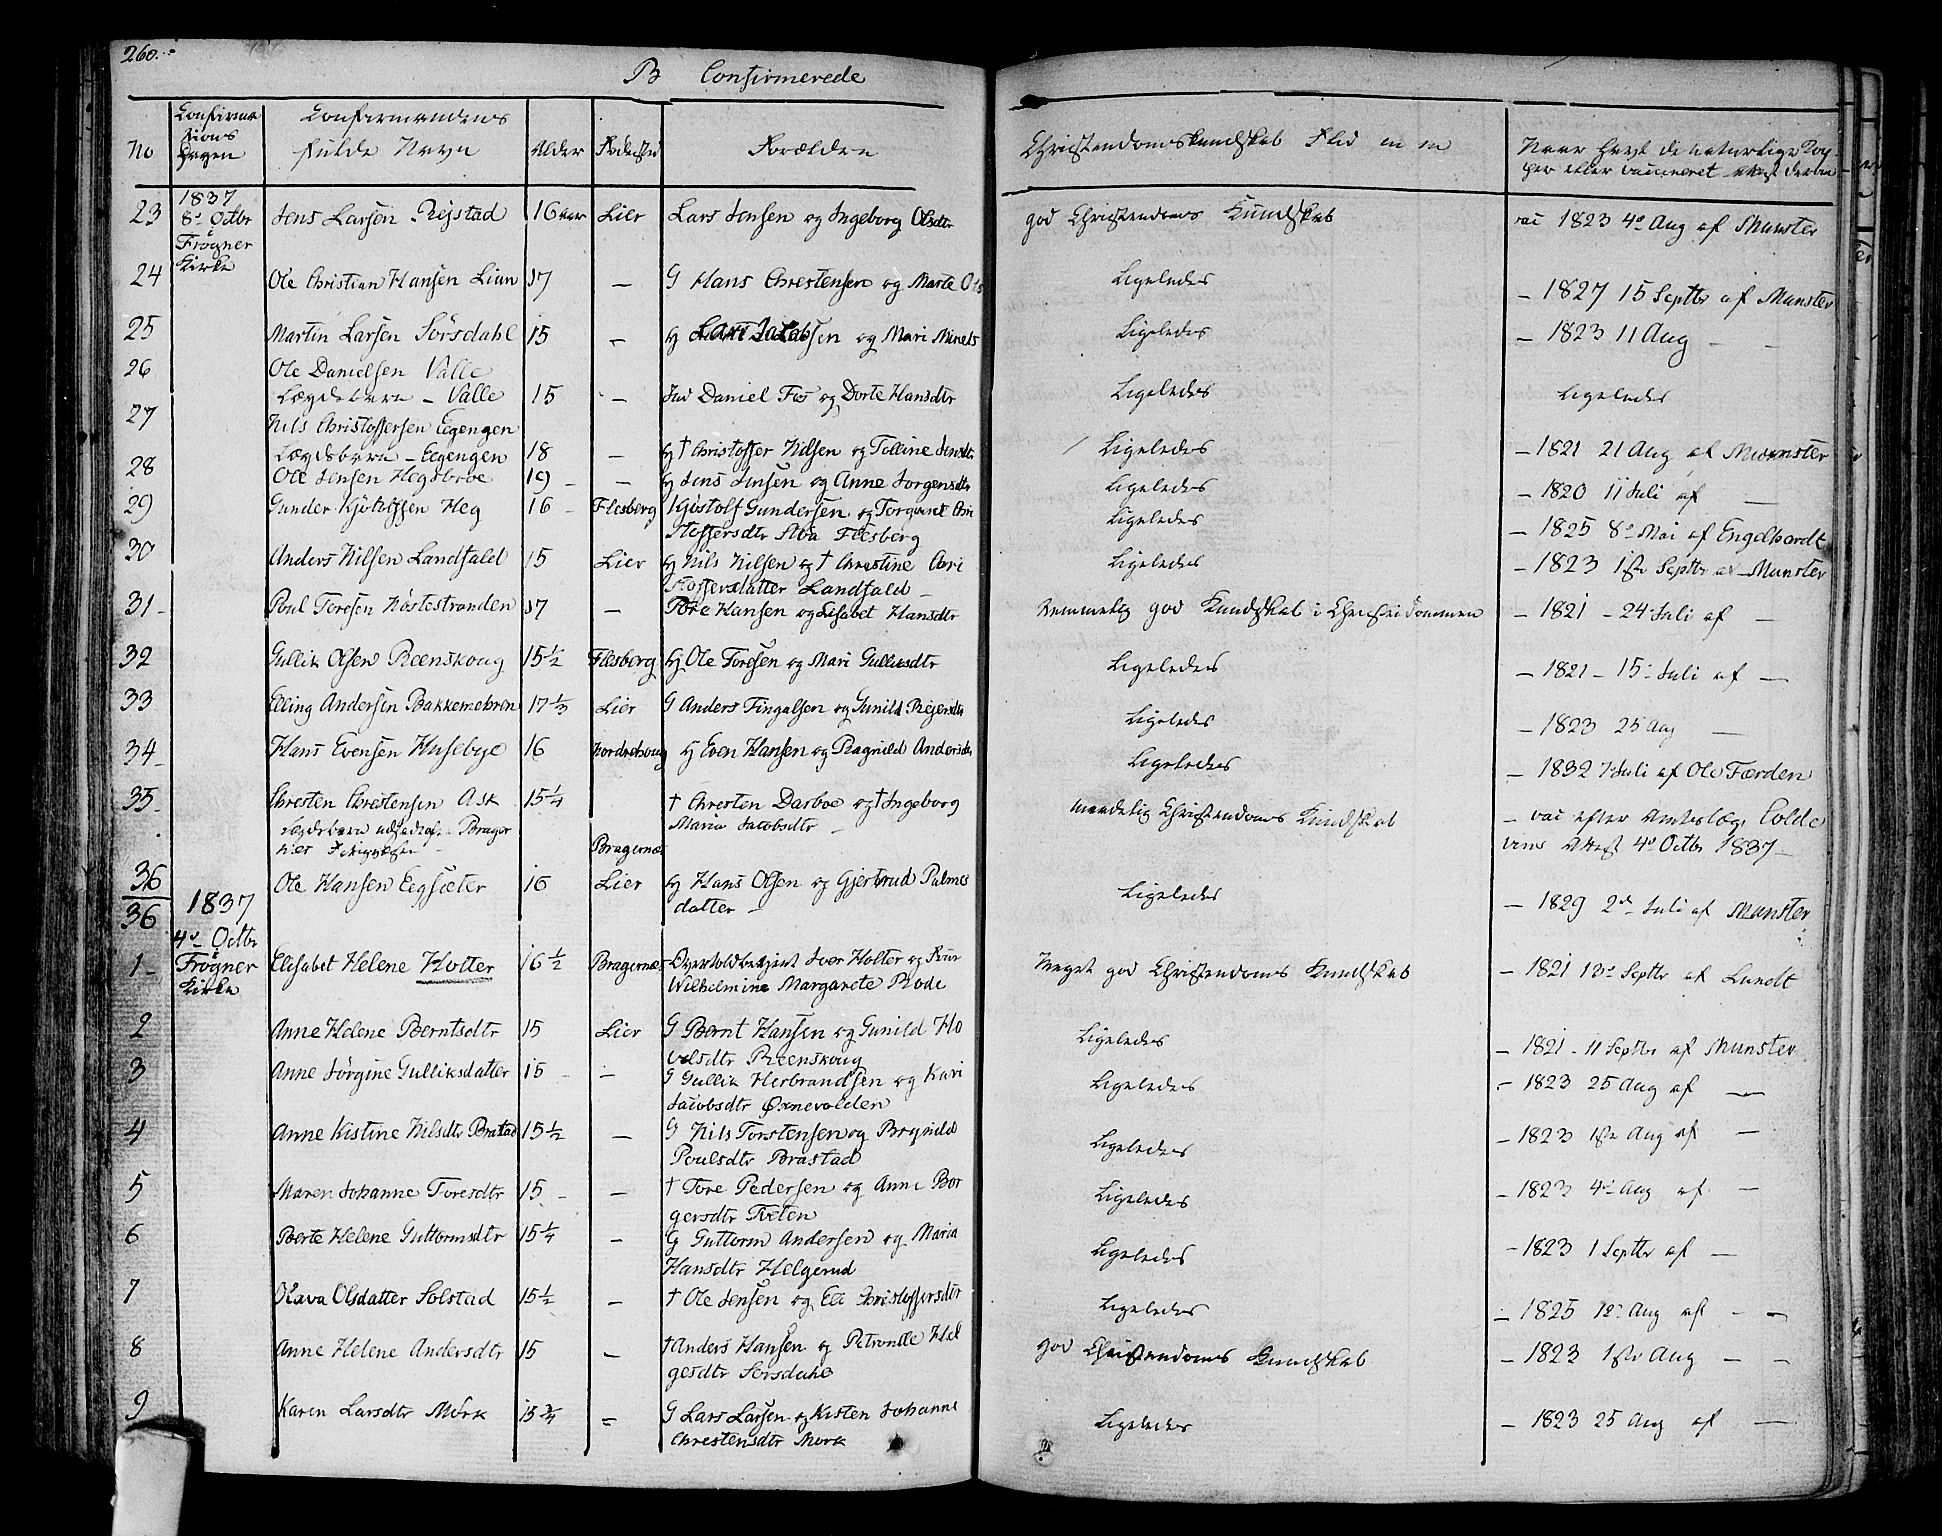 260.
B Confirmerede
No Confirmations Dagen Confirmandens fulde Navn Alder Fødested Forældre Christendomskundskab Flid m m Naar havt de naturlige Kopper eller vaccineret
23 1837 8de Octbr Frogner Kirke Jens Larsen Rejstad 16 aar Lier Lars Jensen og Ingeborg Olsdtr god Christendoms Kundskab vac 1823 4de Aug af Munster
24 Ole Christian Hansen Lian 17 — G Hans Chrestensen og Marte Ols Ligeledes — 1827 15 Septbr af Munster
25 Martin Larsen Sørsdahl 15 — Lars Jacobsen og Mari Ligeledes — 1823 11 Aug — —
26 Ole Danielsen Valle
Lægdebarn — Valle 15 — Daniel og Dorte Hansdtr Ligeledes Ligeledes
27 Nils Christoffersen Eegengen
Lægdebarn — Eegengen 18 — † Christoffer Nilsen og Jensdtr Ligeledes — 1821 21 Aug af Muenster
28 Ole Jensen Hegsbroe 19 — — Jens Jensen og Anne Jørgensdtr Ligeledes — 1820 11 Juli af —
29 Gunder Heg 16 — Flesberg Kjøstolf Gundersen og Chri
stoffersdtr Flesberg Ligeledes — 1825 8de Mai af Engelhardt
30 Anders Nilsen Landfald 15 Lier Nils Nilsen og † Christine Chri
stoffersdatter Landfald — Ligeledes — 1823 1ste Septbr af Munster
31 — Poul Toresen Nøstestranden 17 — Tore Hansen og Lisabet Hansdtr temmelig god Kundskab i Christendommen — 1821 — 24 Juli af —
32 Gullik Olsen Reenskoug 15 1/2 Flesberg Ole Toresen og Mari Gulliksdtr Ligeledes — 1821 — 15 Juli af —
33 Elling Andersen 17 1/3 Lier G Anders Fingalsen og Gunild Ligeledes — 1823 25 Aug —
34 — Hans Evensen Husebye 16 Nordrehoug Even Hansen og Ragnild Anders Ligeledes — 1832 Juli af Ole Færden
35 — Chresten Chrestensen Ask 15 1/4 † Chresten Darboe og † Ingeborg
Maria Jacobsdtr — Bragernæs maadelig Christendoms Kundskab — vac efter Colde
vins Attest 4de Octbr 1837 —
36 Ole Hansen Eegsæter 16 Lier Hans Olsen og Gjertrud Palmes
datter — Ligeledes — 1829 2den Juli af Munster
36
1837
4de Octbr
1 — Frogner Kirke Elisabet Helene Holter 16 1/2 Bragernæs Iver Holter og Frue
Wilhelmine Margarete Rode Meget god Christendoms Kundskab — 1821 13de Septbr af Lundt
2 Anne Helene Berntsdtr 15 Lier G Bernt Hansen og Gunild Ho
velsdtr Reenskoug Ligeledes — 1821 — 11 Septbr af Munster
3 Anne Jørgine Gulliksdatter 15 — — G Gullik Herbrandsen og Kari
Jacobsdtr Øxnevolden Ligeledes — 1823 25 Aug af —
4 Anne Kistine Nilsdtr Brastad 15 1/2 — G Nils Torstensen og Ragnild
Poulsdtr Brastad Ligeledes — 1823 1ste Aug af —
5 Maren Johanne Toresdtr 15 — — † Tore Pedersen og Anne Bor
gersdtr Tveten Ligeledes — 1823 4de Aug af —
6 Berte Helene Guttormsdtr 15 1/4 — G Guttorm Andersen og Maria
Hansdtr Helgerud Ligeledes — 1823 1 Septbr af —
7 Olava Olsdatter Solstad 15 1/2 — † Ole Jensen og Eli Christoffersdtr Ligeledes — 1825 12 Aug af — —
8 Anne Helene Andersdtr 15 — † Anders Hansen og Petronelle Hel
gesdtr Sørsdahl god Christendoms Kundskab — 1823 1ste Aug — —
9 Karen Larsdtr Mørk 15 3/4 = G Lars Larsen og Kisten Johanne
Chrestensdtr Mørk Ligeledes — 1823 25 Aug af —